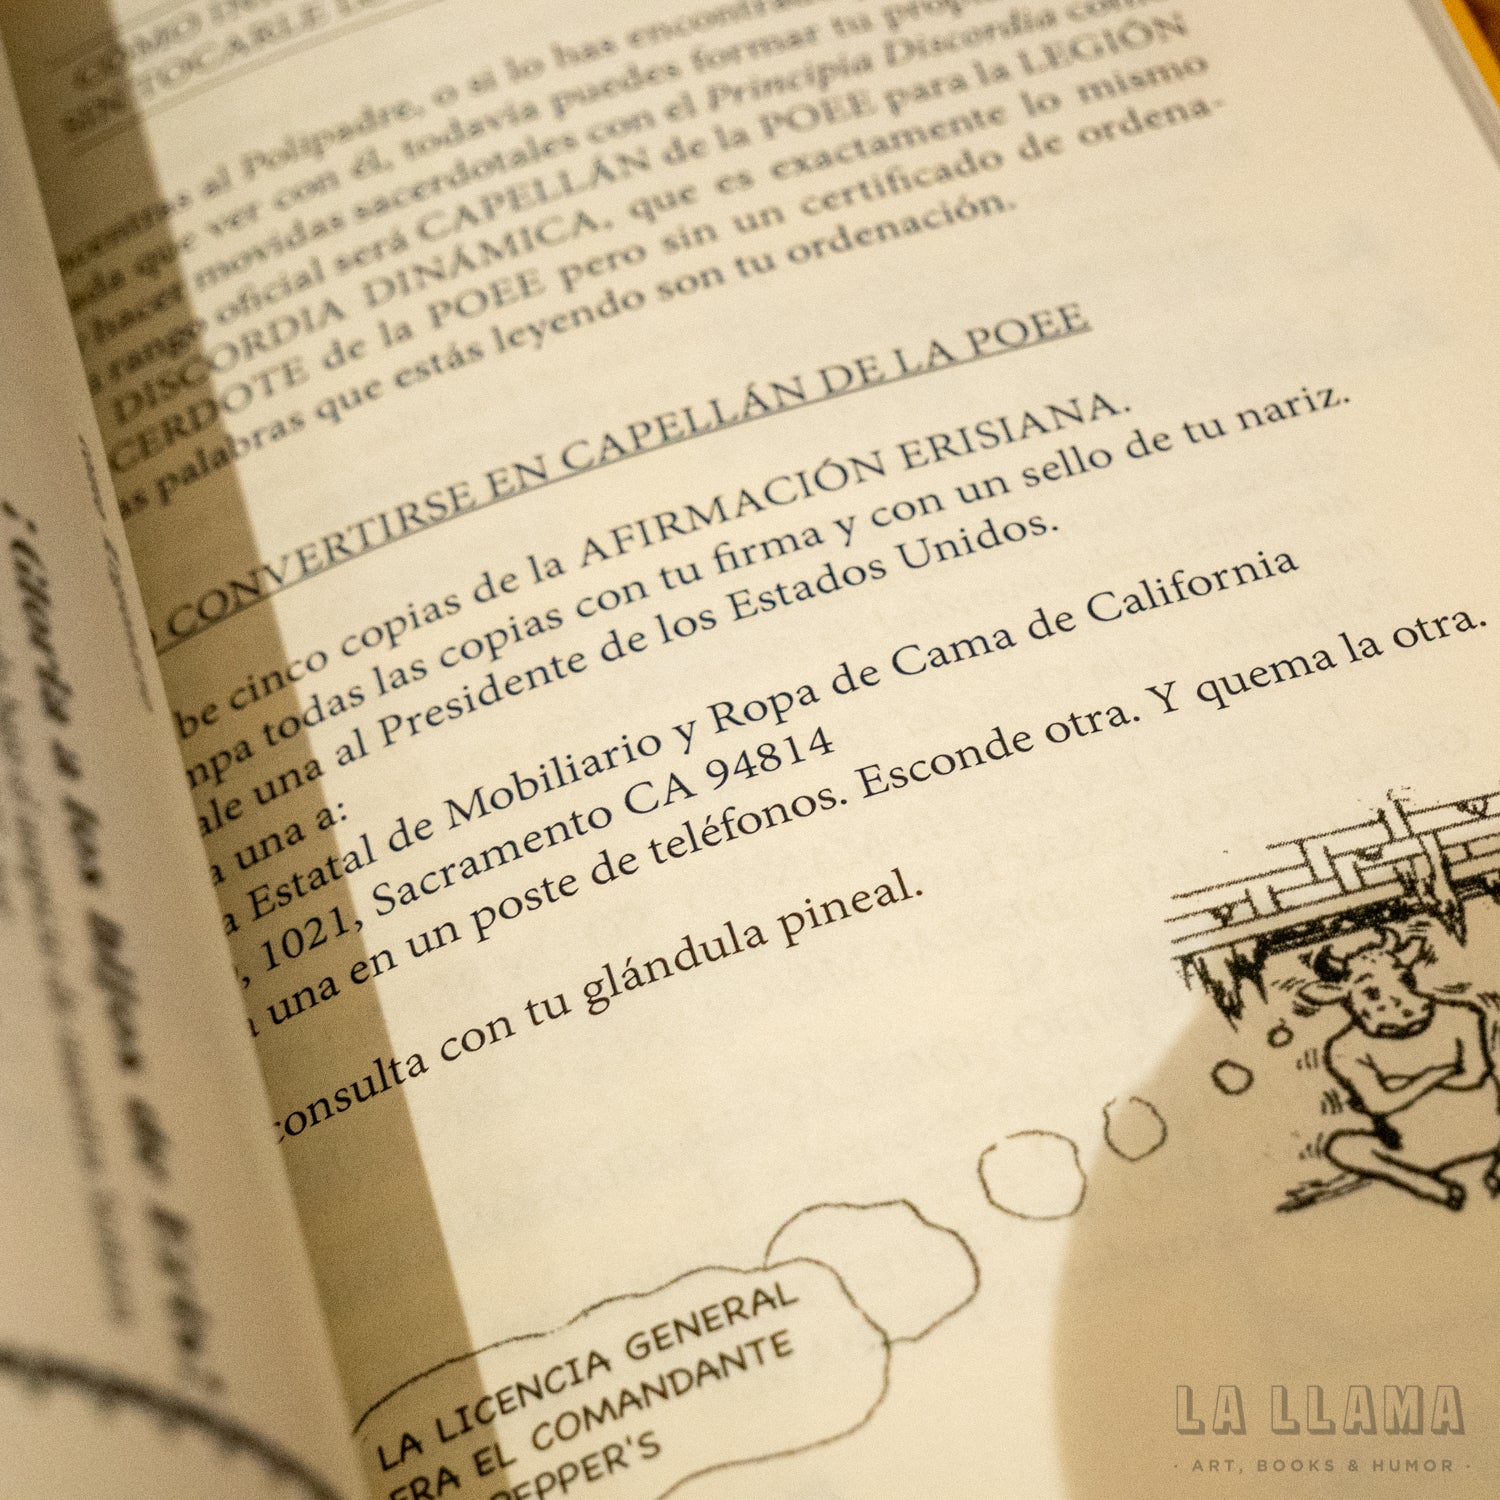 al Polipadre, o si lo has
ver con él, todavía puedes formar tu
hacer movidas sacerdotales con el Principia Discordia
rango oficial será CAPELLÁN de la POEE para la LEGIÓN
DISCORDIA DINÁMICA, que es exactamente lo mismo
CERDOTE de la POEE pero sin un certificado de ordena-
as palabras que estás leyendo son tu ordenación.
CONVERTIRSE EN CAPELLÁN DE LA POEE
be cinco copias de la AFIRMACIÓN ERISIANA.
mpa todas las copias con tu firma y con un sello de tu nariz.
ale una al Presidente de los Estados Unidos.
a una a:
a Estatal de Mobiliario y Ropa de Cama de California
, 1021, Sacramento CA 94814
una en un poste de teléfonos. Esconde otra. Y quema la otra.
consulta con tu glándula pineal.
LA LICENCIA GENERAL
ERA EL COMANDANTE
PEPPER'S
LA LLAMA
· ART, BOOKS & HUMOR ·